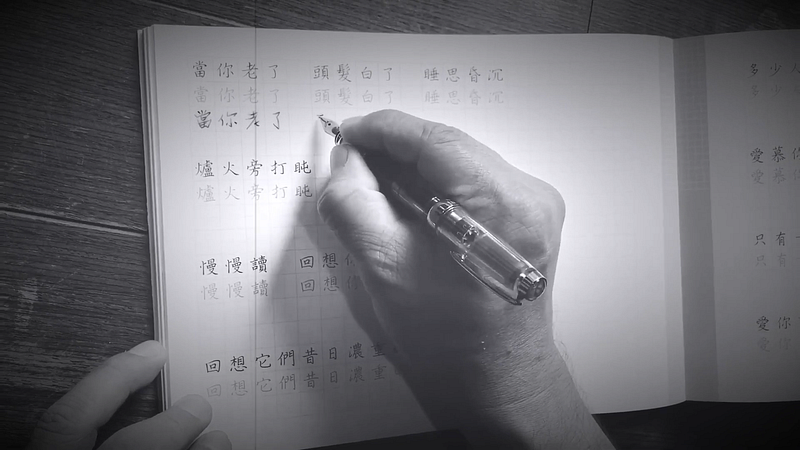 當你老了 頭髮白了 睡思昏沉
當你老了 頭髮白了 睡思昏沉
當你老了
爐火旁打盹
爐火旁打盹
慢慢讀 回想你
慢慢讀 回想你
回想它們昔日濃重
回想它們昔日濃重
多少
多少
愛慕你
愛慕你
只有一
只有
愛你
愛你